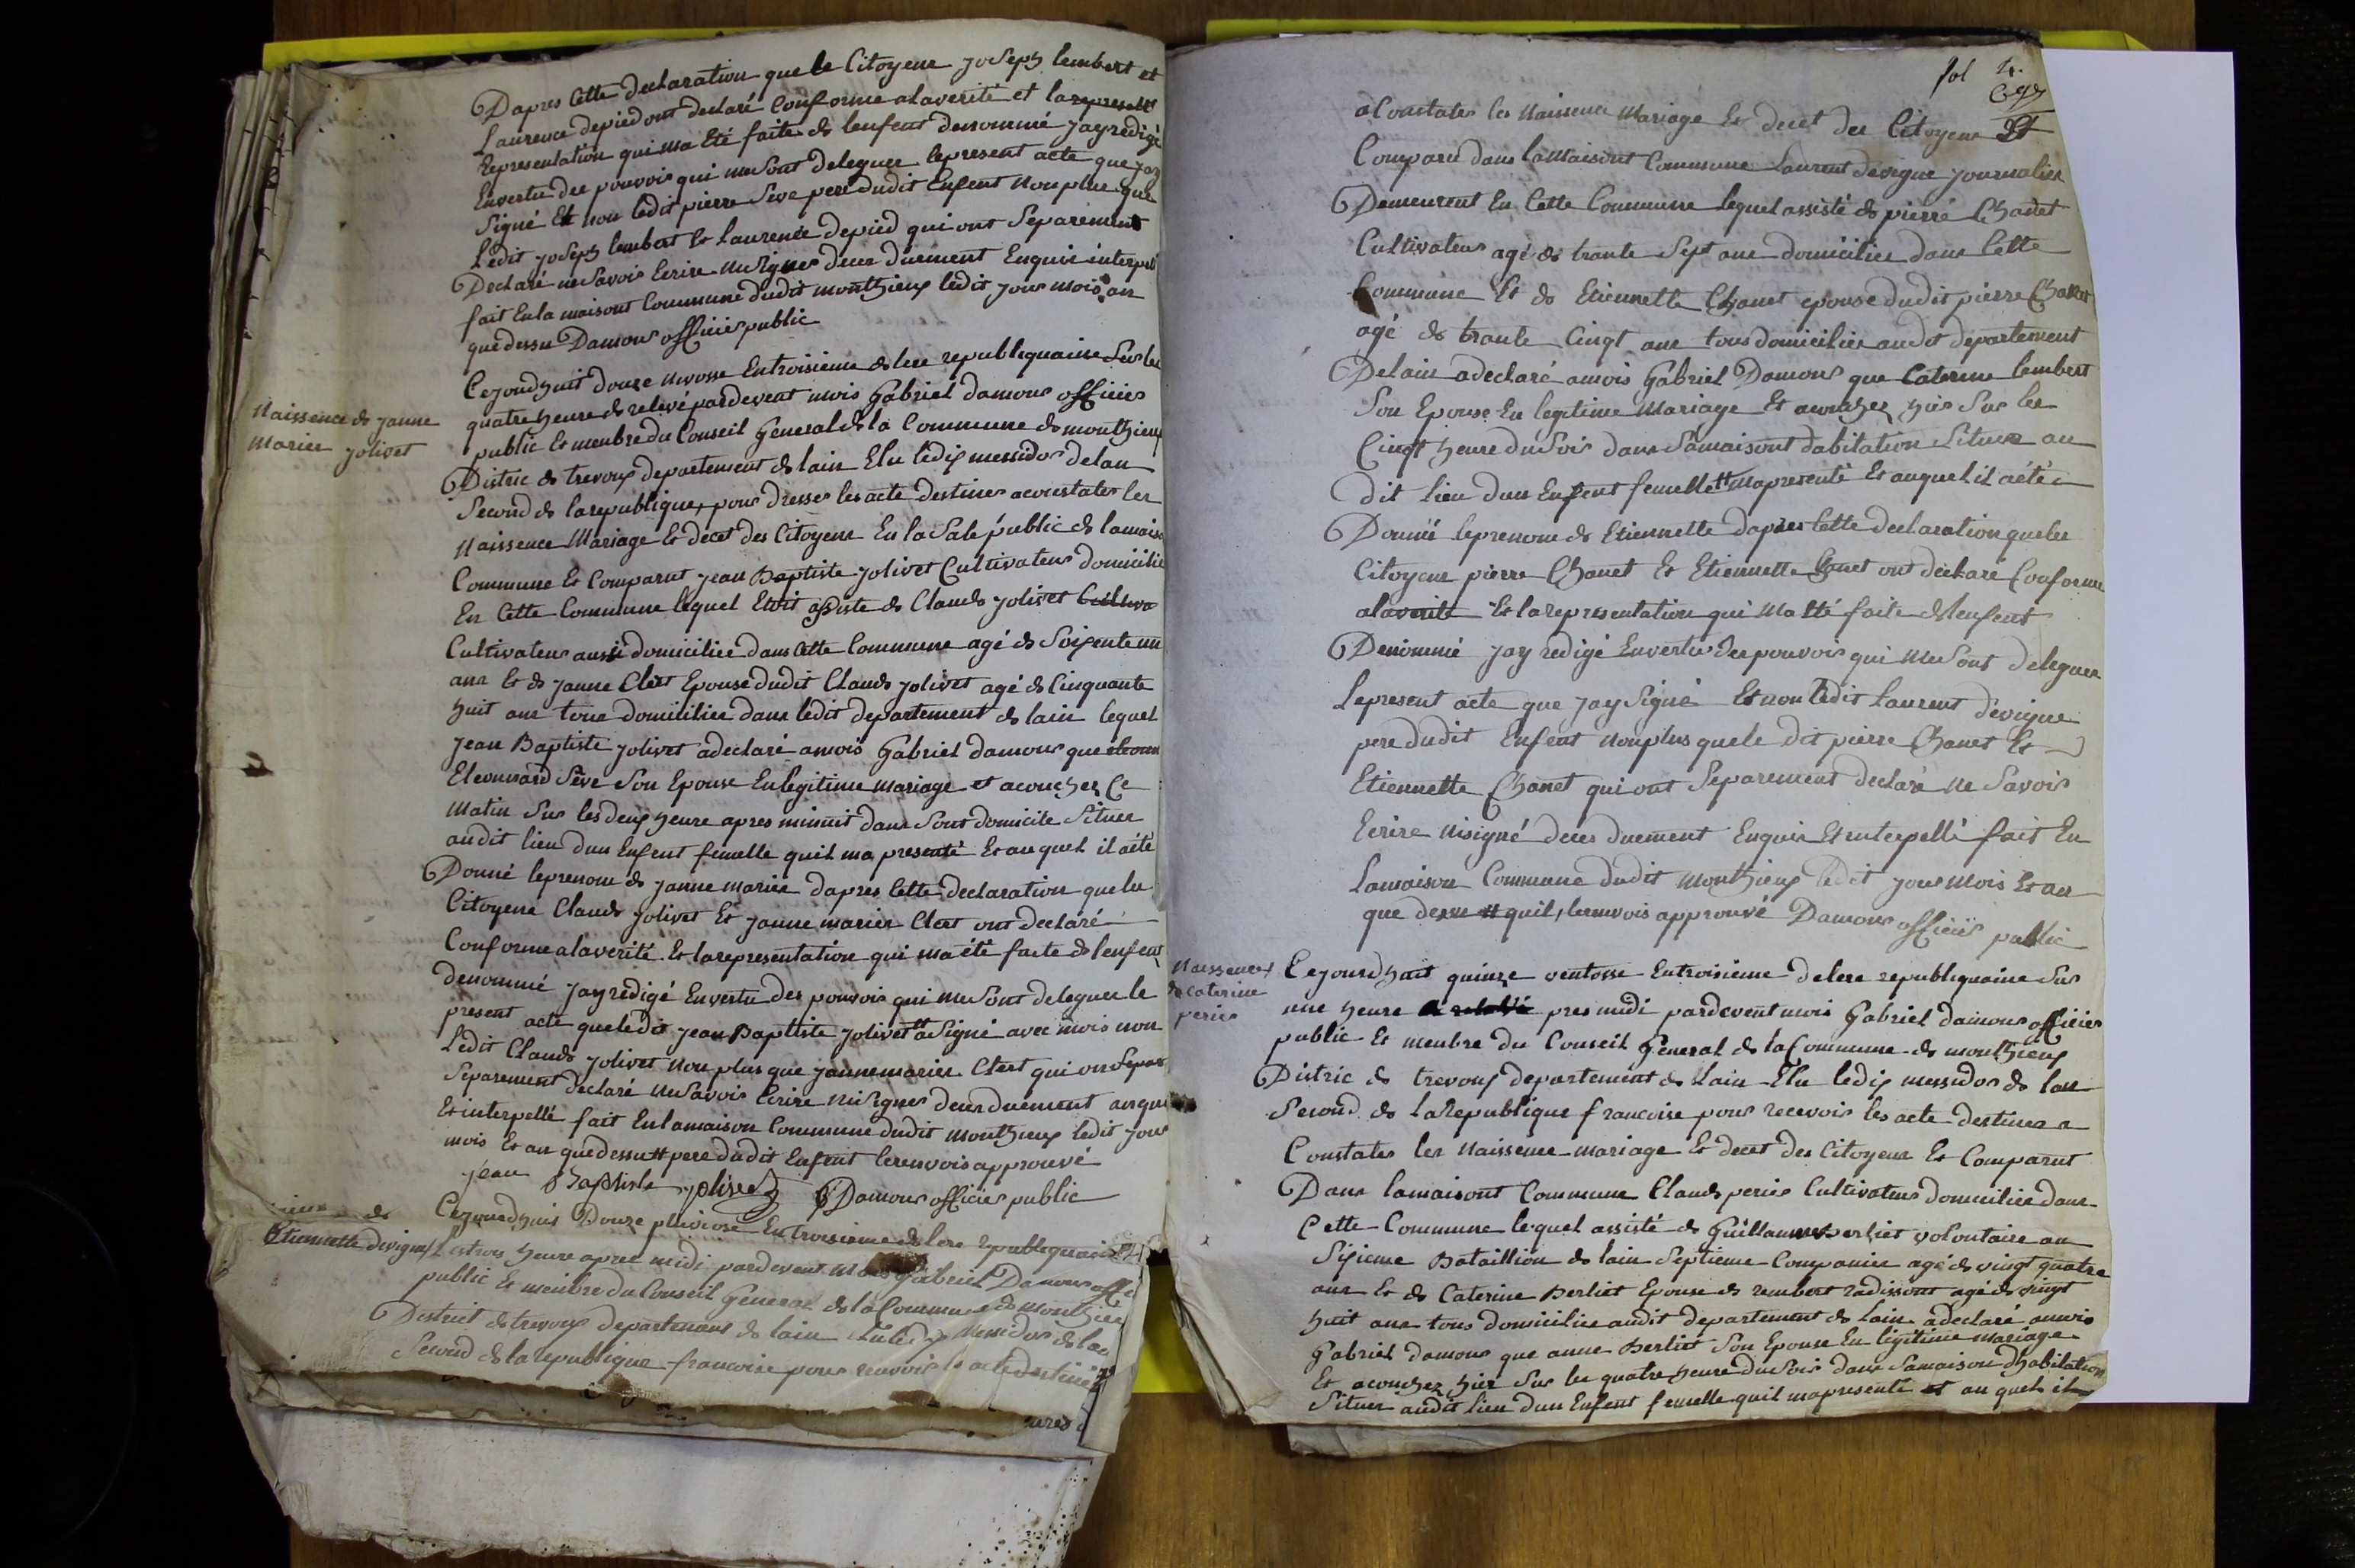 Dapres Cette declaration que le Citoyene joSeph lembert et
Laurence depied ont declaré Conforme alaverité et la represent
Representation qui ma Eté faite de lenfent denommé jay redigé
Envertu des pouvoir qui meSont deleguer lepresent acte que jay
Signé Et non ledit pierre Seve pere dudit Enfent Nonplus que
Ledit joSeph lembert Et Laurence depied qui ont Separement
Declaré neSavoir Ecrire niSigner deces duement Enquis interpel
fait En la maisont Commune dudit monthieux ledit jour mois an
que dessu Damour officier public
Naissence de janne
marier jolivet
Cejourdhuit douze nivosse Entroisieme de lere republiquaine Sur les
quatre heure de relevé pardevent mois Gabriel damour officier
public Et menbre du Conseil General de la Commune de monthieux
Distric de trevoux departement de lain Elu ledix messidor de lan
Second de la republique, pour dresser les acte destines aconstater les
Naissence Mariage Et decet des Citoyene En la Sale public de lamaiso
Commune Et Comparut jean Baptiste jolivet Cultivateur domicilié
En Cette Commune lequel Etoit assiste de Claude jolivet Cultiva
Cultivateur aussi domiciliee dans Cette Commune agé de Soixente un
ans Et de janne Clert Epouse dudit Claude jolivet agé de Cinquante
huit ans tous domiciliee dans ledit departement de lain lequel
jean Baptiste jolivet adeclaré amois Gabriel damour que eleonn
Eleonnard Séve Son Epouse En legitime Mariage et acouchez Ce
Matin Sur les deux heure apres minuit dans Sont domicile Situer
audit lieu dun Enfent femelle quil ma presenté Et auquel il aété
Donné leprenom de janne marier dapres Cette declaration que les
Citoyene Claude jolivet Et janne marier Clert ont declaré
Conforme alaverité Et la representation qui ma été faite de lenfent
denommé jay redigé Envertu des pouvoir qui meSont deleguer le
present acte queledit jean Baptiste jolivet # a Signé avec mois non
Ledit Claude jolivet Non plus que jannemarier Clert qui on Sepa
Separement declaré neSavoir Ecrire niSigner deces duement anqui
Et interpellé fait Enlamaison Commune dudit monthieux ledit jour
mois Et an que dessu # pere dudit Enfent lerenvois approuvé
jean Baptiste jolivet Damour officier public
de
Etiennette devigne
Cejourdhuis Douze pluviose Entroisieme de lere republiquai
Les trois heure apres midi pardevent mois Gabriel Damour offi
public Et menbre du Conseil General de la Commune de monthieu
District de trevoux departement de lain Elu le dix Messidor de lan
Second de la republique francoise pour recevoir les acte destinée
fol 4.
aConstater les Naissence Mariage Et decet des Citoyene Et
Comparu dans laMaisont Commune Laurent devigne journalier
Demeurent En Cette Commune lequel assisté de pierre Chanet
Cultivateur agé de trante Sept ans domicilier dans Cette
Commune Et de Etiennette Chanet epouse dudit pierre Chanet
agé de trante Cinqt ans tous domicilier audit departement
De lain adeclaré amois Gabriel Damour que Caterine lembert
Son Epouse En legitime Mariage Et acouchez hier Sur les
Cinqt heure duSoir dans Samaisont dabitation Situer au
dit lieu dun Enfent femelle # mapresenté Et auquel il aété
Donné leprenom de Etiennette dapres Cette declaration queles
Citoyene pierre Chanet Et Etiennette Chanet ont declaré Conforme
alaverité Et la representation qui Ma été faite de lenfent
Denommé jay redigé Envertu des pouvoir qui meSont deleguer
Lepresent acte que jay Signé Et non ledit Laurent devigne
pere dudit Enfent Nonplus quele dit pierre Chanet Et
Etiennette Chanet qui ont Separement declaré Ne Savoir
Ecrire Nisigné deces duement Enquis Et interpellé fait En
Lamaison Commune dudit Monthieux ledit jour Mois Et an
que dessu # quil, lerenvois approuvé Damour officier public
Naissence
de Caterine
perier
Cejourdhuit quinze ventosse Entroisieme delere republiquaine Sur
une heure pres midi pardevent mois Gabriel damour officier
public Et menbre du Conseil General de la Commune de monthieux
Distric de trevoux departement de Lain Elu ledix messidor de lan
Second de laRepublique francoise pour recevoir les acte destines a
Constater les Naissence mariage Et decet des Citoyene Et Comparut
Dans lamaisont Commune Claude perier Cultivateur domiciliee dans
Cette Commune lequel assisté de Guillaume Berliet volontaire au
Sixieme Bataillion de lain Septieme Companier agé de vingt quatre
ans Et de Caterine Berliet Epouse de rembert radissont agé de vingt
huit ans tous domicilier audit departement de Lain adeclaré amois
Gabriel damour que anne Berliet Son Epouse En legitime mariage
Et acouchez hier Sur les quatre heure duSoir dans Samaison dhabitation
Situer audit lieu dun Enfent femelle quil mapresenté et au quel il